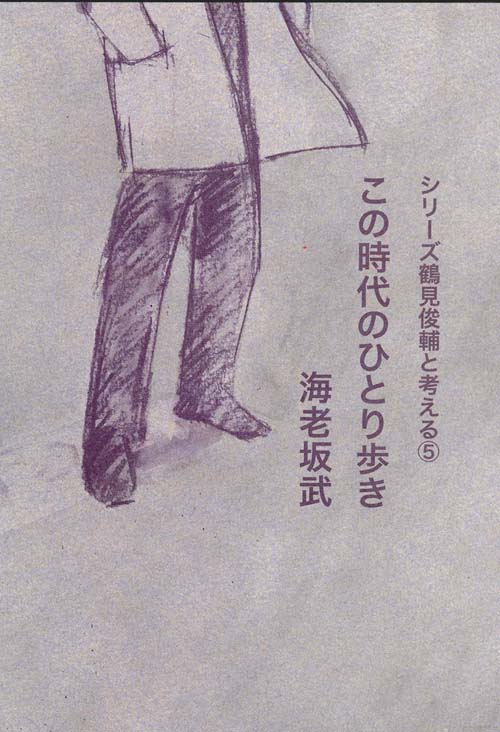 シリーズ鶴見俊輔と考える⑤
この時代のひとり歩き
海老坂武